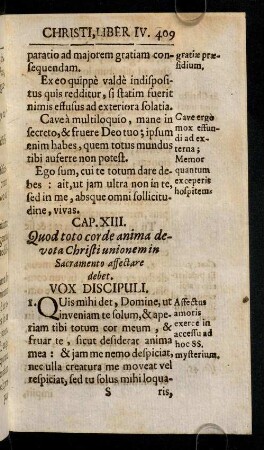 CHRISTI, LIBER IV. 409
paratio ad majorem gratiam con-
sequendam.
Ex eo quippè valdè indisposi-
tus quis redditur, si statim fuerit
nimis effusus ad exteriora solatia.
Cave à multiloquio, mane in
secreto, & fruere Deo tuo; ipsum
enim habes, quem totus mundus
tibi auferre non potest.
Ego sum, cui te totum dare de-
bes: ait, ut jam ultra non in te,
sed in me, absque omni sollicitu-
dine, vivas.
gratiæ præ-
sidium.
Cave ergò
mox effun-
di ad ex-
terna;
Memor
quantum
exceperis
hospitem.
CAP. XIII.
Quod toto corde anima de-
vota Christi unionem in
Sacramento affectare
debet.
VOX DISCIPULI.
1. QUis mihi det, Domine, ut
inveniam te solum, & ape-
riam tibi totum cor meum, &
fruar te, sicut desiderat anima
mea: & jam nemo despiciat,
nec ulla creatura me moveat vel
respiciat, sed tu solus mihi loqua-
Affectus
amoris
exerce in
accessu ad
hoc SS.
mysterium.
S ris,